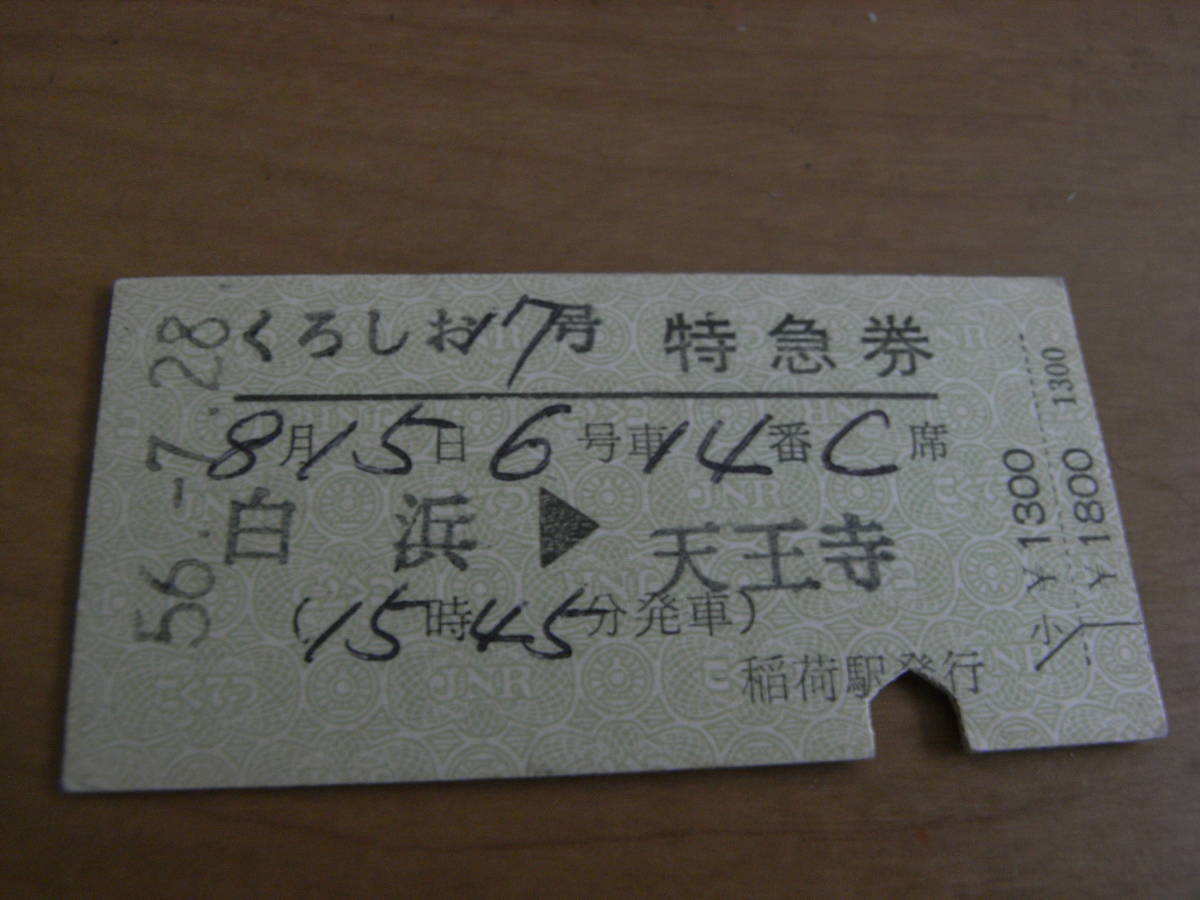 56.-7.28
くろしお17号 特急券
8月15日 6号車14番C席
白浜▶天王寺
(15時45分発車)
稲荷駅発行
小 ¥1300
¥1800 1300